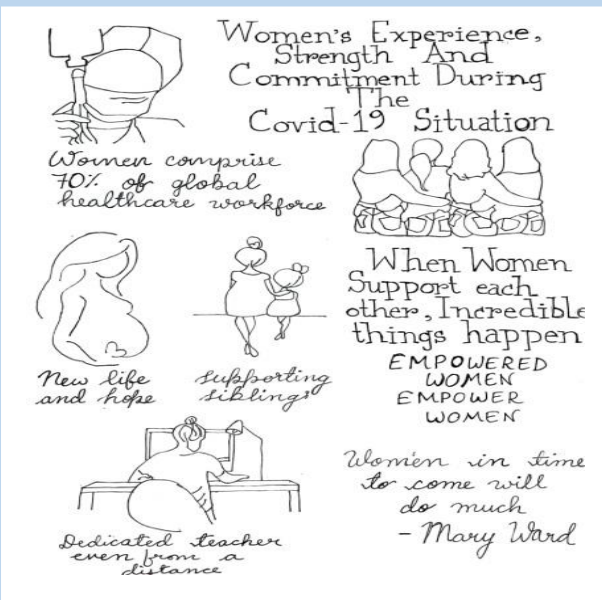 Women's Experience,
Strength And
Commitment During
The
Covid-19 Situation
Women comprise
70% of global
healthcare workforce
When Women
Support each
other, Incredible
things happen
EMPOWERED
WOMEN
EMPOWER
WOMEN
New life
and hope
supporting
siblings
Dedicated teacher
even from a
distance
Women in time
to come will
do much
- Mary Ward